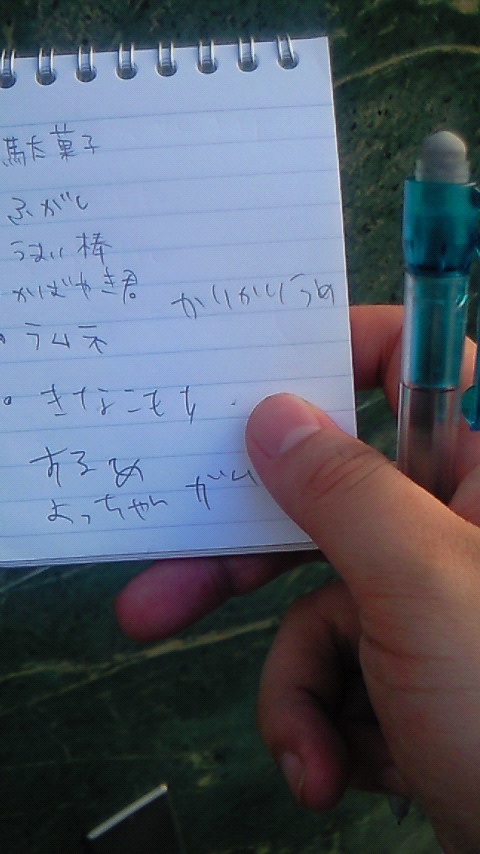 駄菓子
ふがし
うまい棒
かばやき君
かりかりうめ
・ラムネ
・きなこもち
するめ
よっちゃん